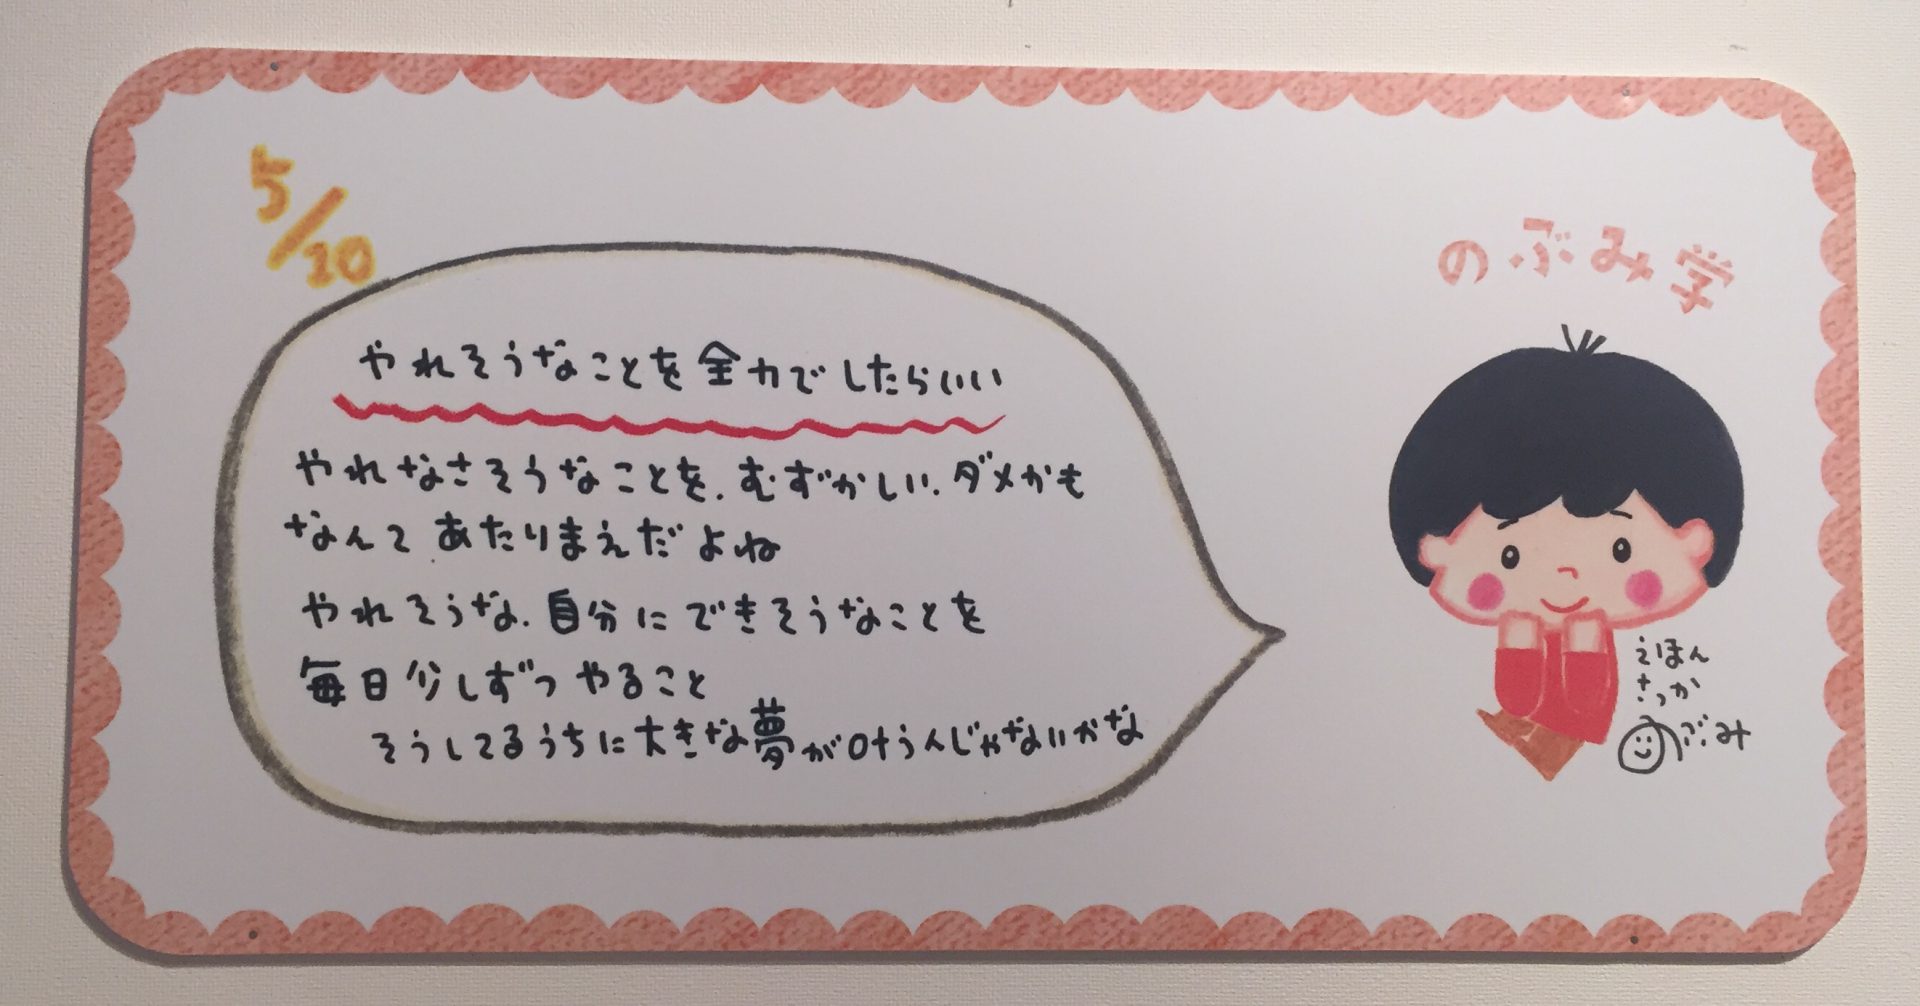 5/20
のぶみ学
やれそうなことを全力でしたらいい
やれなさそうなことを、むずかしい、ダメかも
なんて あたりまえだよね
やれそうな、自分にできそうなことを
毎日少しずつ やること
そうしてるうちに大きな夢が叶うんじゃないかな
えほん
さっか
のぶみ